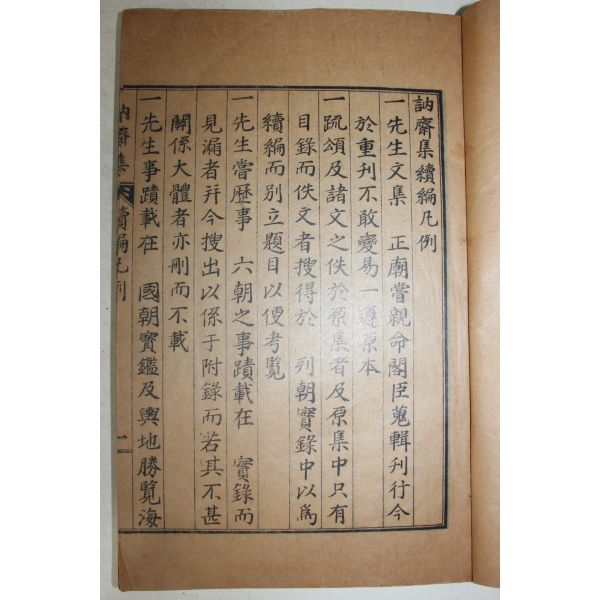 訥齋集續編凡例
一先生文集 正廟嘗親命閣臣蒐輯刊行今
於重刊不敢變易一遵原本
一疏頌及諸文之佚於原集者及原集中只有
目錄而佚文者搜得於 列朝實錄中以爲
續編而別立題目以便考覽
一先生嘗歷事 六朝之事蹟載在 實錄而
見漏者幷今搜出以係于附錄而若其不甚
關係大體者亦刪而不載
一先生事蹟載在 國朝寶鑑及輿地勝覽海
訥齋集 續編凡例 一